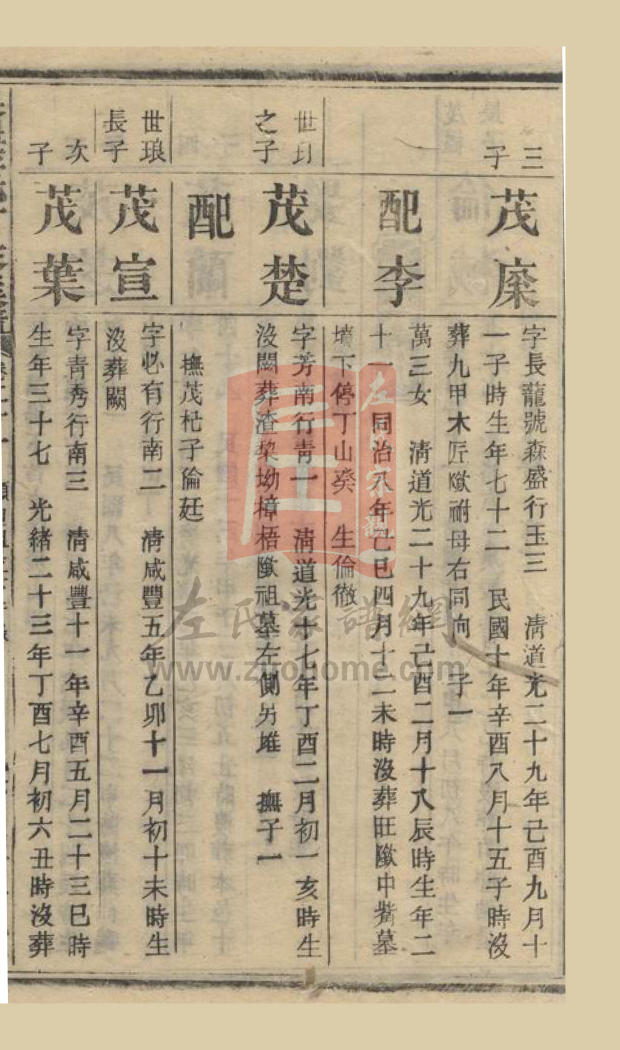 三子
茂
字長龍號森盛行玉三 清道光二十九年己酉九月十
一子時生年七十二 民國十年辛酉八月十五子時沒
葬九甲木匠墩祔母右同向 子一
配李
萬三女 清道光二十九年己酉二月十八辰時生年二
十一 同治八年己巳四月十二未時沒葬旺墩中嘴墓
墳下停丁山癸 生倫徹
世 之子
茂楚
字芳南行青一 清道光十七年丁酉二月初一亥時生
沒闕葬渣棃坳樟梧墩祖墓左側另堆 撫子一
配
撫茂杞子倫廷
世琅長子
茂宣
字必有行南二 清咸豐五年乙卯十一月初十未時生
沒葬闕
次子
茂葉
字青秀行南三 清咸豐十一年辛酉五月二十三巳時
生年三十七 光緒二十三年丁酉七月初六丑時沒葬
左氏家譜網
www.zuohome.com